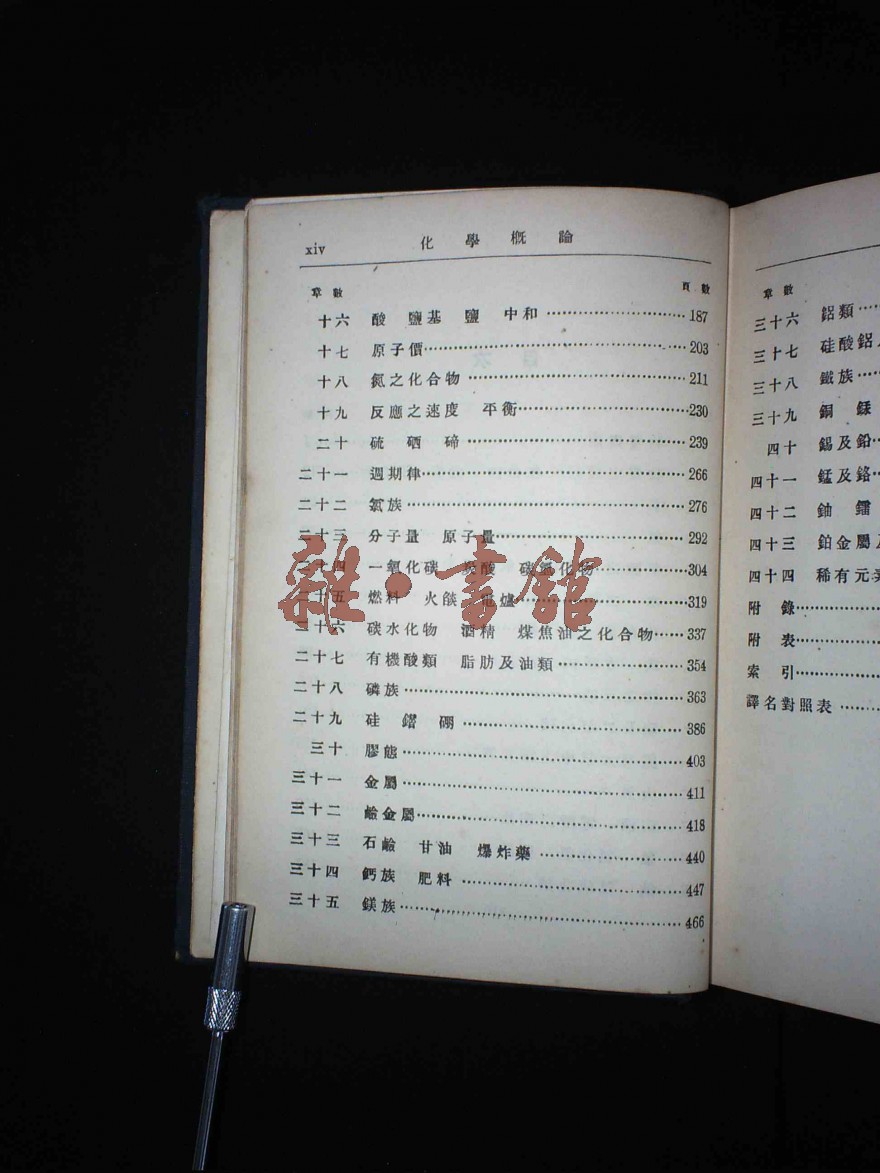 xiv 化學概論
章數 頁數
十六 酸 鹽基 鹽 中和 187
十七 原子價 203
十八 氮之化合物 211
十九 反應之速度 平衡 230
二十 硫 硒 碲 239
二十一 週期律 266
二十二 氯族 276
二十三 分子量 原子量 292
二十四 一氧化碳 炭酸 化物 304
二十五 燃料 火燄 電爐 319
二十六 碳水化物 酒精 煤焦油之化合物 337
二十七 有機酸類 脂肪及油類 354
二十八 磷族 363
二十九 硅 硼 386
三十 膠態 403
三十一 金屬 411
三十二 鹼金屬 418
三十三 石鹼 甘油 爆炸藥 440
三十四 鈣族 肥料 447
三十五 鎂族 466
章數
三十六 鋁類
三十七 硅酸鋁
三十八 鐵族
三十九 銅
四十 錫及鉛
四十一 錳及鉻
四十二 鈾 鐳
四十三 鉑金屬
四十四 稀有元素
附錄
附表
索引
譯名對照表
雜·書館